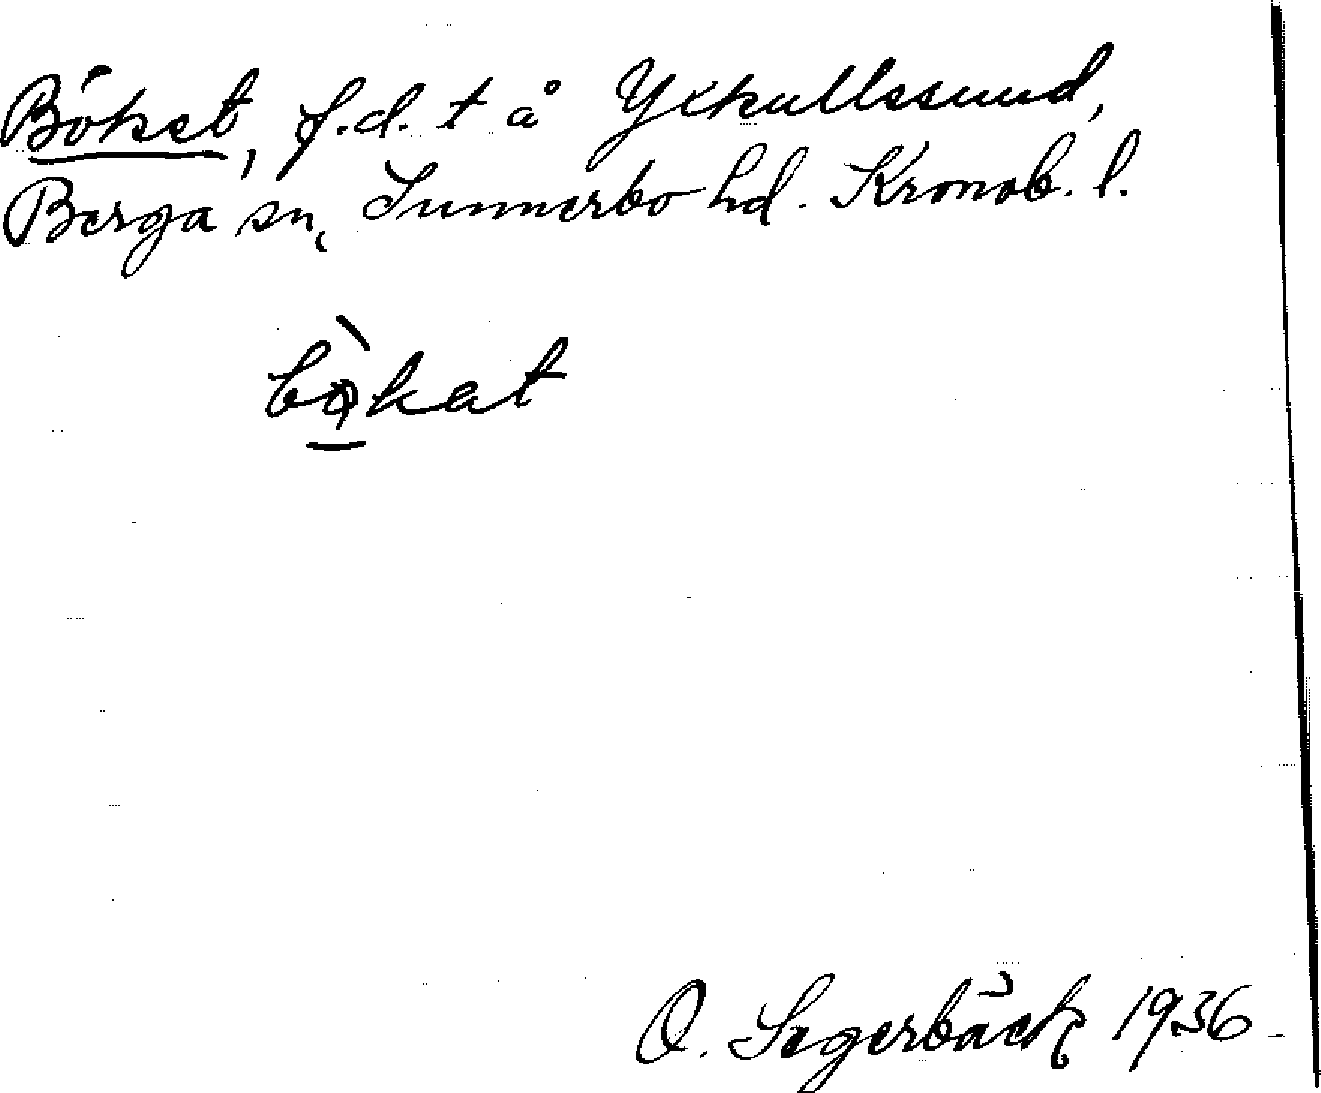 Böket, f.d. t å Yxkullssund,
Berga sn, Sunnerbo hd. Kronob. l.
bò̱kat
O. Segerbäck 1936